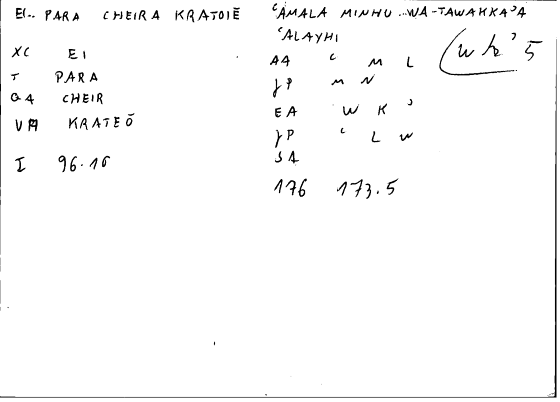 EI.. PARA CHEIRA KRATOIĒ
XC EI
T PARA
GA CHEIR
VA KRATEŌ
I 96.16
ʿAMALA MINHU ..WA-TAWAKKAʾA
ʿALAYHI
AA ʿ M L
JP M N
EA W K ʾ
JP ʿ L W
JA
176 173.5
(w k ʾ 5